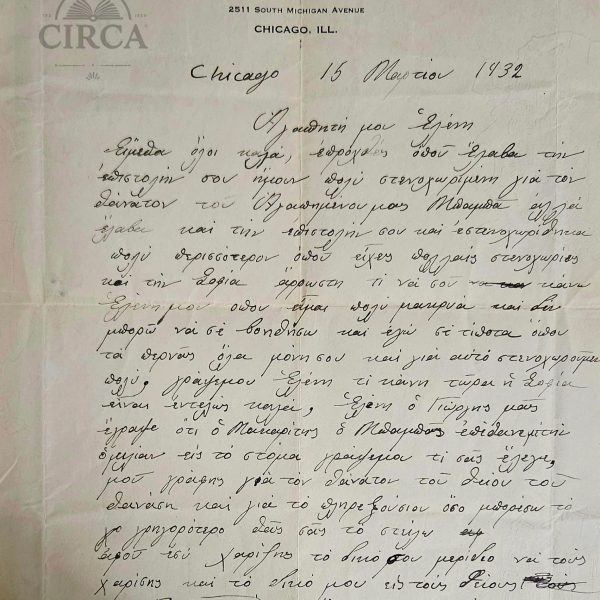 CIRCA
2511 South Michigan Avenue
CHICAGO, ILL.
Chicago 15 Μαρτίου 1932
Ἀγαπητή μου Ἑλένη
Εἴμεθα ὅλοι καλά, ἐπρόχθες ὁποῦ ἔλαβα τὴν
ἐπιστολήν σου ἤμουν πολύ στενοχωριμένη γιά τον
θάνατον τοῦ Ἀγαπημένου μας Μπαμπᾶ ἀλλά
ἔλαβα και τήν ἐπιστολήν σου και ἐστενοχωρίθηκα
πολύ περισσότερον ὁποῦ εἶχες πολλαίς στενοχωρίες
και τήν Σοφία ἄρρωστη τι νά σοῦ κάνω
Ἑλένη μου οπου εἶμαι πολύ μακρυά και δεν
μπορῶ νά σέ βοηθήσω και ἐγώ σέ τίποτα ὅπου
τά περνᾶς ὅλα μόνη σου και γιά αὐτό στενοχωρούμε
πολύ, γράψεμου Ἑλένη τί κάνη τώρα ἡ Σοφία
εἶναι ἐντελῶς καλά, Ἑλένη ὁ Γιώργης μᾶς
ἔγραψε ὅτι ὁ Μακαρίτης ὁ Μπαμπᾶς ἐπέθανε μέ τήν
ὁμιλίαν εἰς τό στόμα γράψεμα τί σας ἔλεγε,
μοῦ γράφης γιά τον θάνατον τοῦ θείου τοῦ
Θανάση και γιά τό πληρεξούσιον ὅσο μπορέσω τό
γρηγορότερο θά σᾶς τό στείλω
ἀφοῦ ἐσύ χαρίζης τό δικό σου μερίδιο νά τούς
χαρίσης και τό δικό μου εἰς τούς θείους